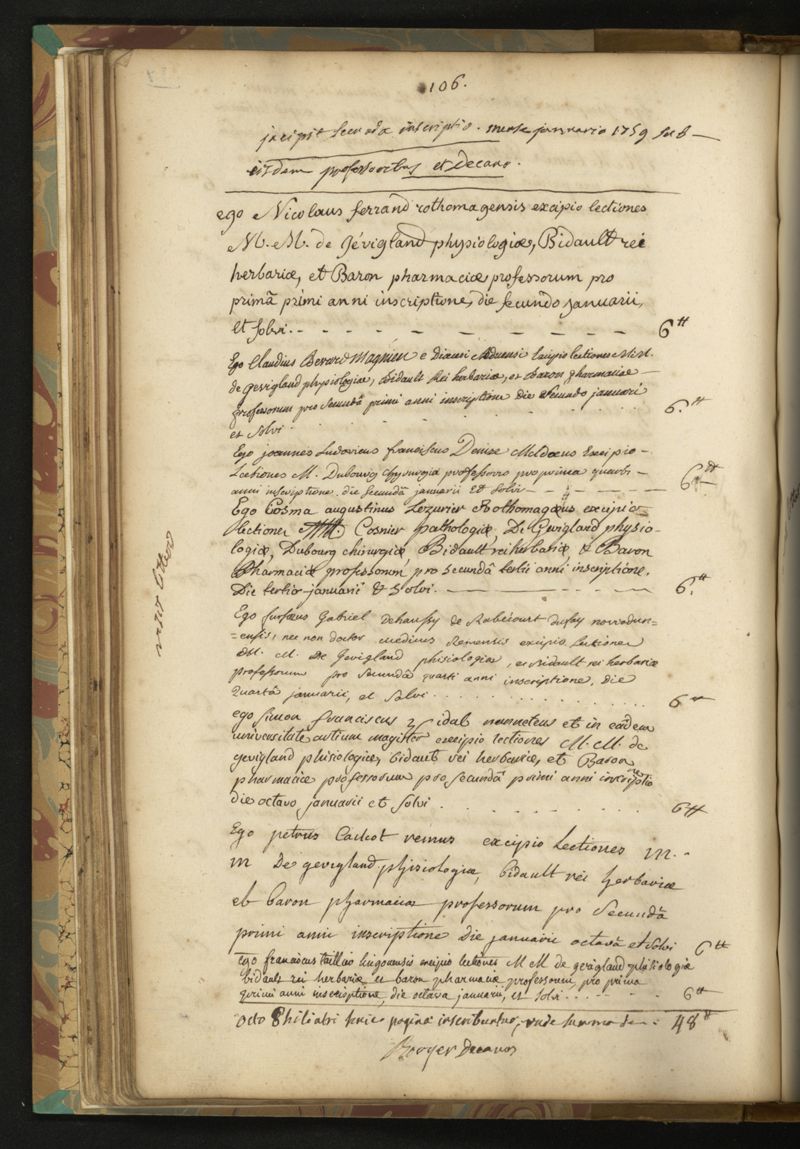 106.
incipit secunda inscriptio. mense januario 1759 sub
iisdem professoribus et decano.
ego Nicolaus ferrand rothomagensis excipio lectiones
M. M. de Gévigland physiologiæ, Bidault rei
herbariæ, et Baron pharmaciæ professorum pro
primâ primi anni inscriptione, die secundo januarii,
et solvi. 6 ᵗᵗ
Ego Claudius Berard Magnien e Diœcesi Æduensi excipio lectiones M.M.
de gevigland physiologiæ, Bidault Rei herbariæ, et Baron pharmaciæ
professorum pro secundâ primi anni inscriptione die secundo januarii
et solvi. 6. ᵗᵗ
Ego joannes Ludovicus franciscus Denise Meldæus Excipio
Lectiones M. Dubourg chyrurgiæ professoris pro prima quarti
anni inscriptione. die secundâ januarii Et solvi 6 ᵗᵗ
Ego Cosma augustinus Lezurier Rothomagæus excipio
lectiones MM. Cosnier pathologiæ, De Gevigland physio-
logiæ, Dubourg chirurgiæ Bidault rei herbariæ & Baron
Pharmaciæ professorum pro secundâ tertii anni inscriptione.
Die tertio januarii & solvi. 6. ᵗᵗ
Ego Gabriel Dehaussy de Robécourt novodun-
=ensis, nec non doctor medicus Remensis excipio Lectiones
M. M. De Gevigland phisiologiæ, et Bidault rei herbariæ
professorum pro secundâ quarti anni inscriptione, die
quartâ januarii, et solvi 6 ᵗᵗ
ego Simon franciscus vidal nanneteus et in eadem
universitate artium magister excipio lectiones M. M. de
gevigland phisiologiæ, bidault rei herbariæ, et Baron
pharmaciæ professorum pro secundâ primi anni inscriptione
die octavo januarii et solvi. 6 ᵗᵗ
Ego petrus Cachot remus excipio Lectiones m.
m De gevigland physiologiæ, bidault rei herbariæ
et baron pharmaciæ professorum pro secundâ
primi anni inscriptione Die januarii octavâ et solvi 6 ᵗᵗ
Ego franciscus lingonensis excipio lectiones M M de gevigland phisiologiæ
bidault rei herbariæ et baron pharmaciæ professorum, pro prima
primi anni inscriptione, die octava januarii, et solvi 6 ᵗᵗ
Octo Philiatri huic paginæ inscribuntur, unde summa 48 ᵗᵗ
Boyer Decanus